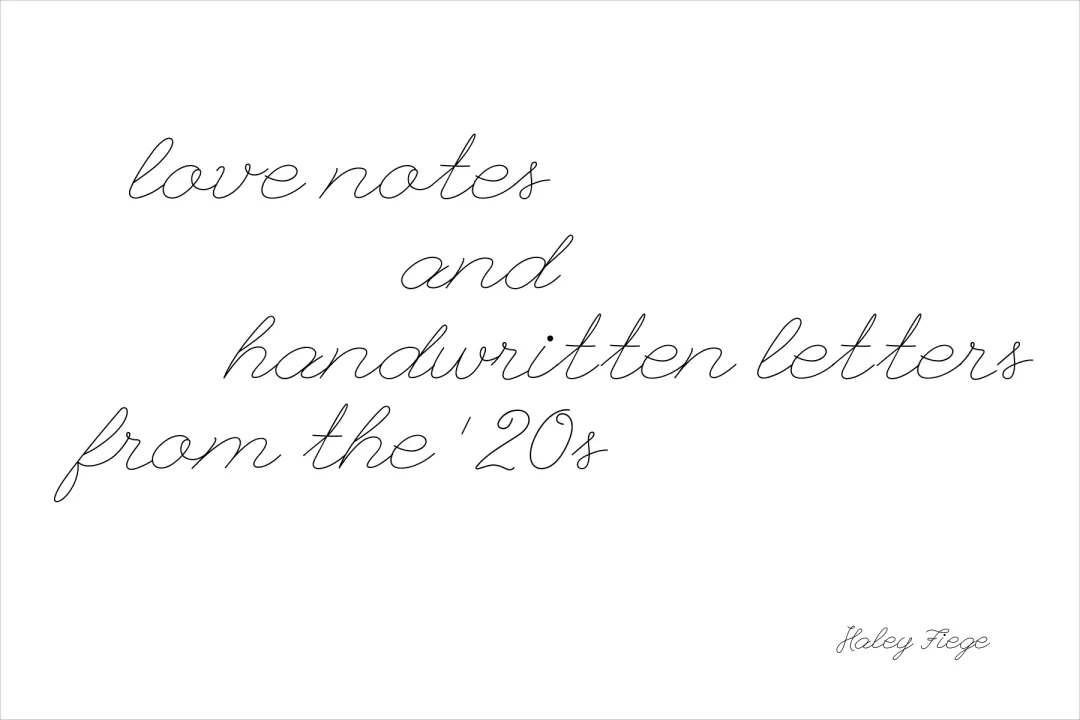 love notes
and
handwritten letters
from the '20s
Haley Fiege